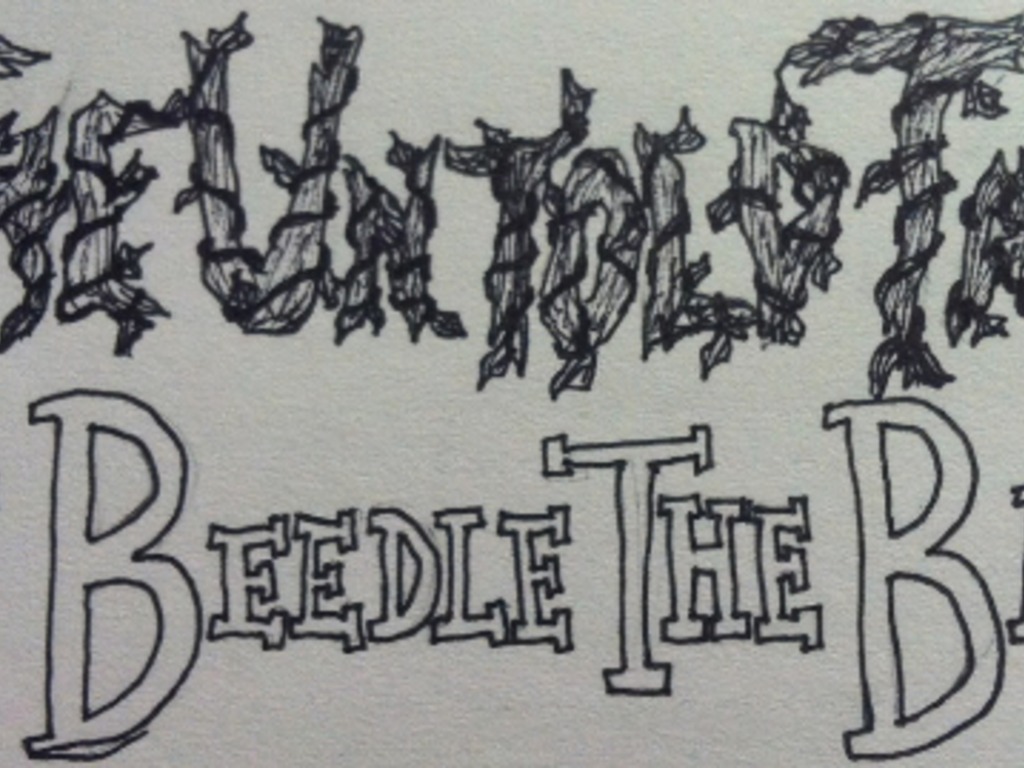 HE UNTOLD TA
BEEDLE THE B